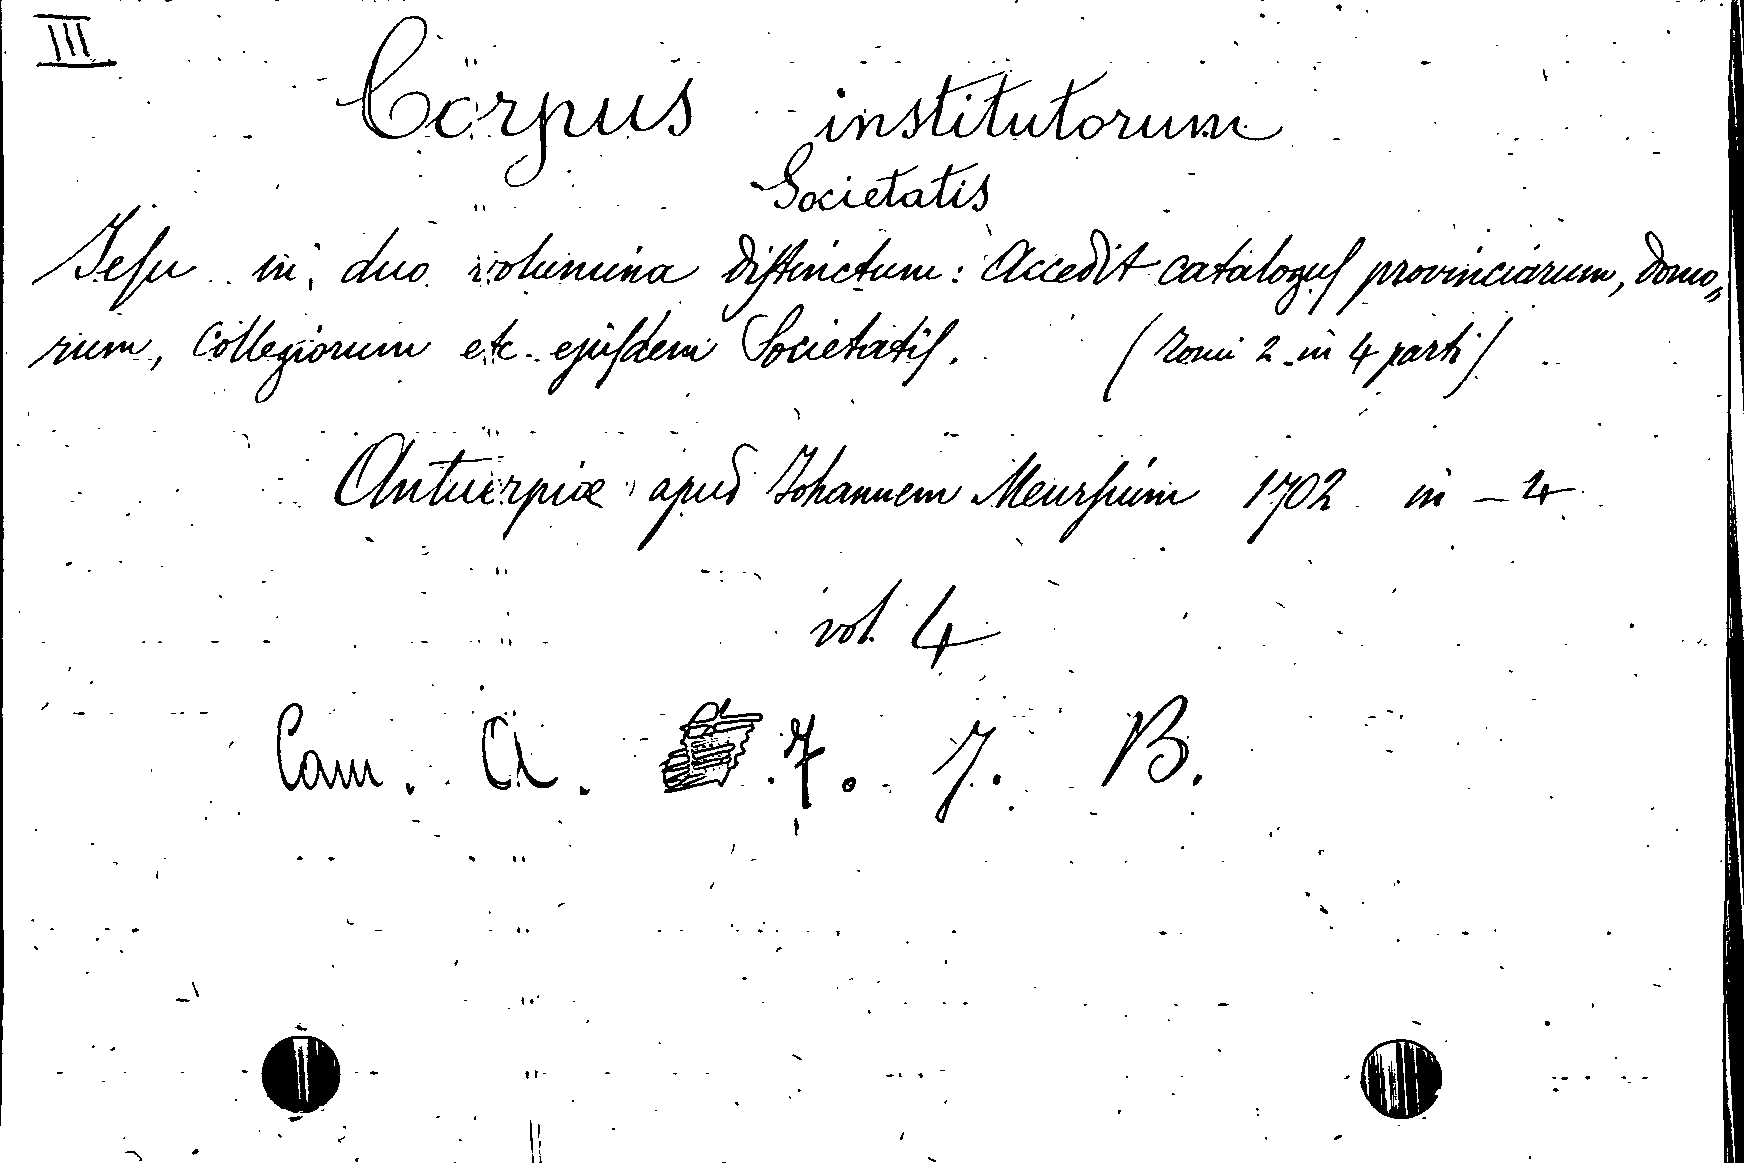 III
Corpus institutorum
Societatis
Jesu in duo volumina distinctum: Accedit catalogus provinciarum, domo„
rum, Collegiorum etc. ejusdem Societatis. (Tomi 2 in 4 parti)
Antuerpiæ apud Johannem Meursium 1702 in - 4
vol. 4
Cam. A. 7. 7. B.